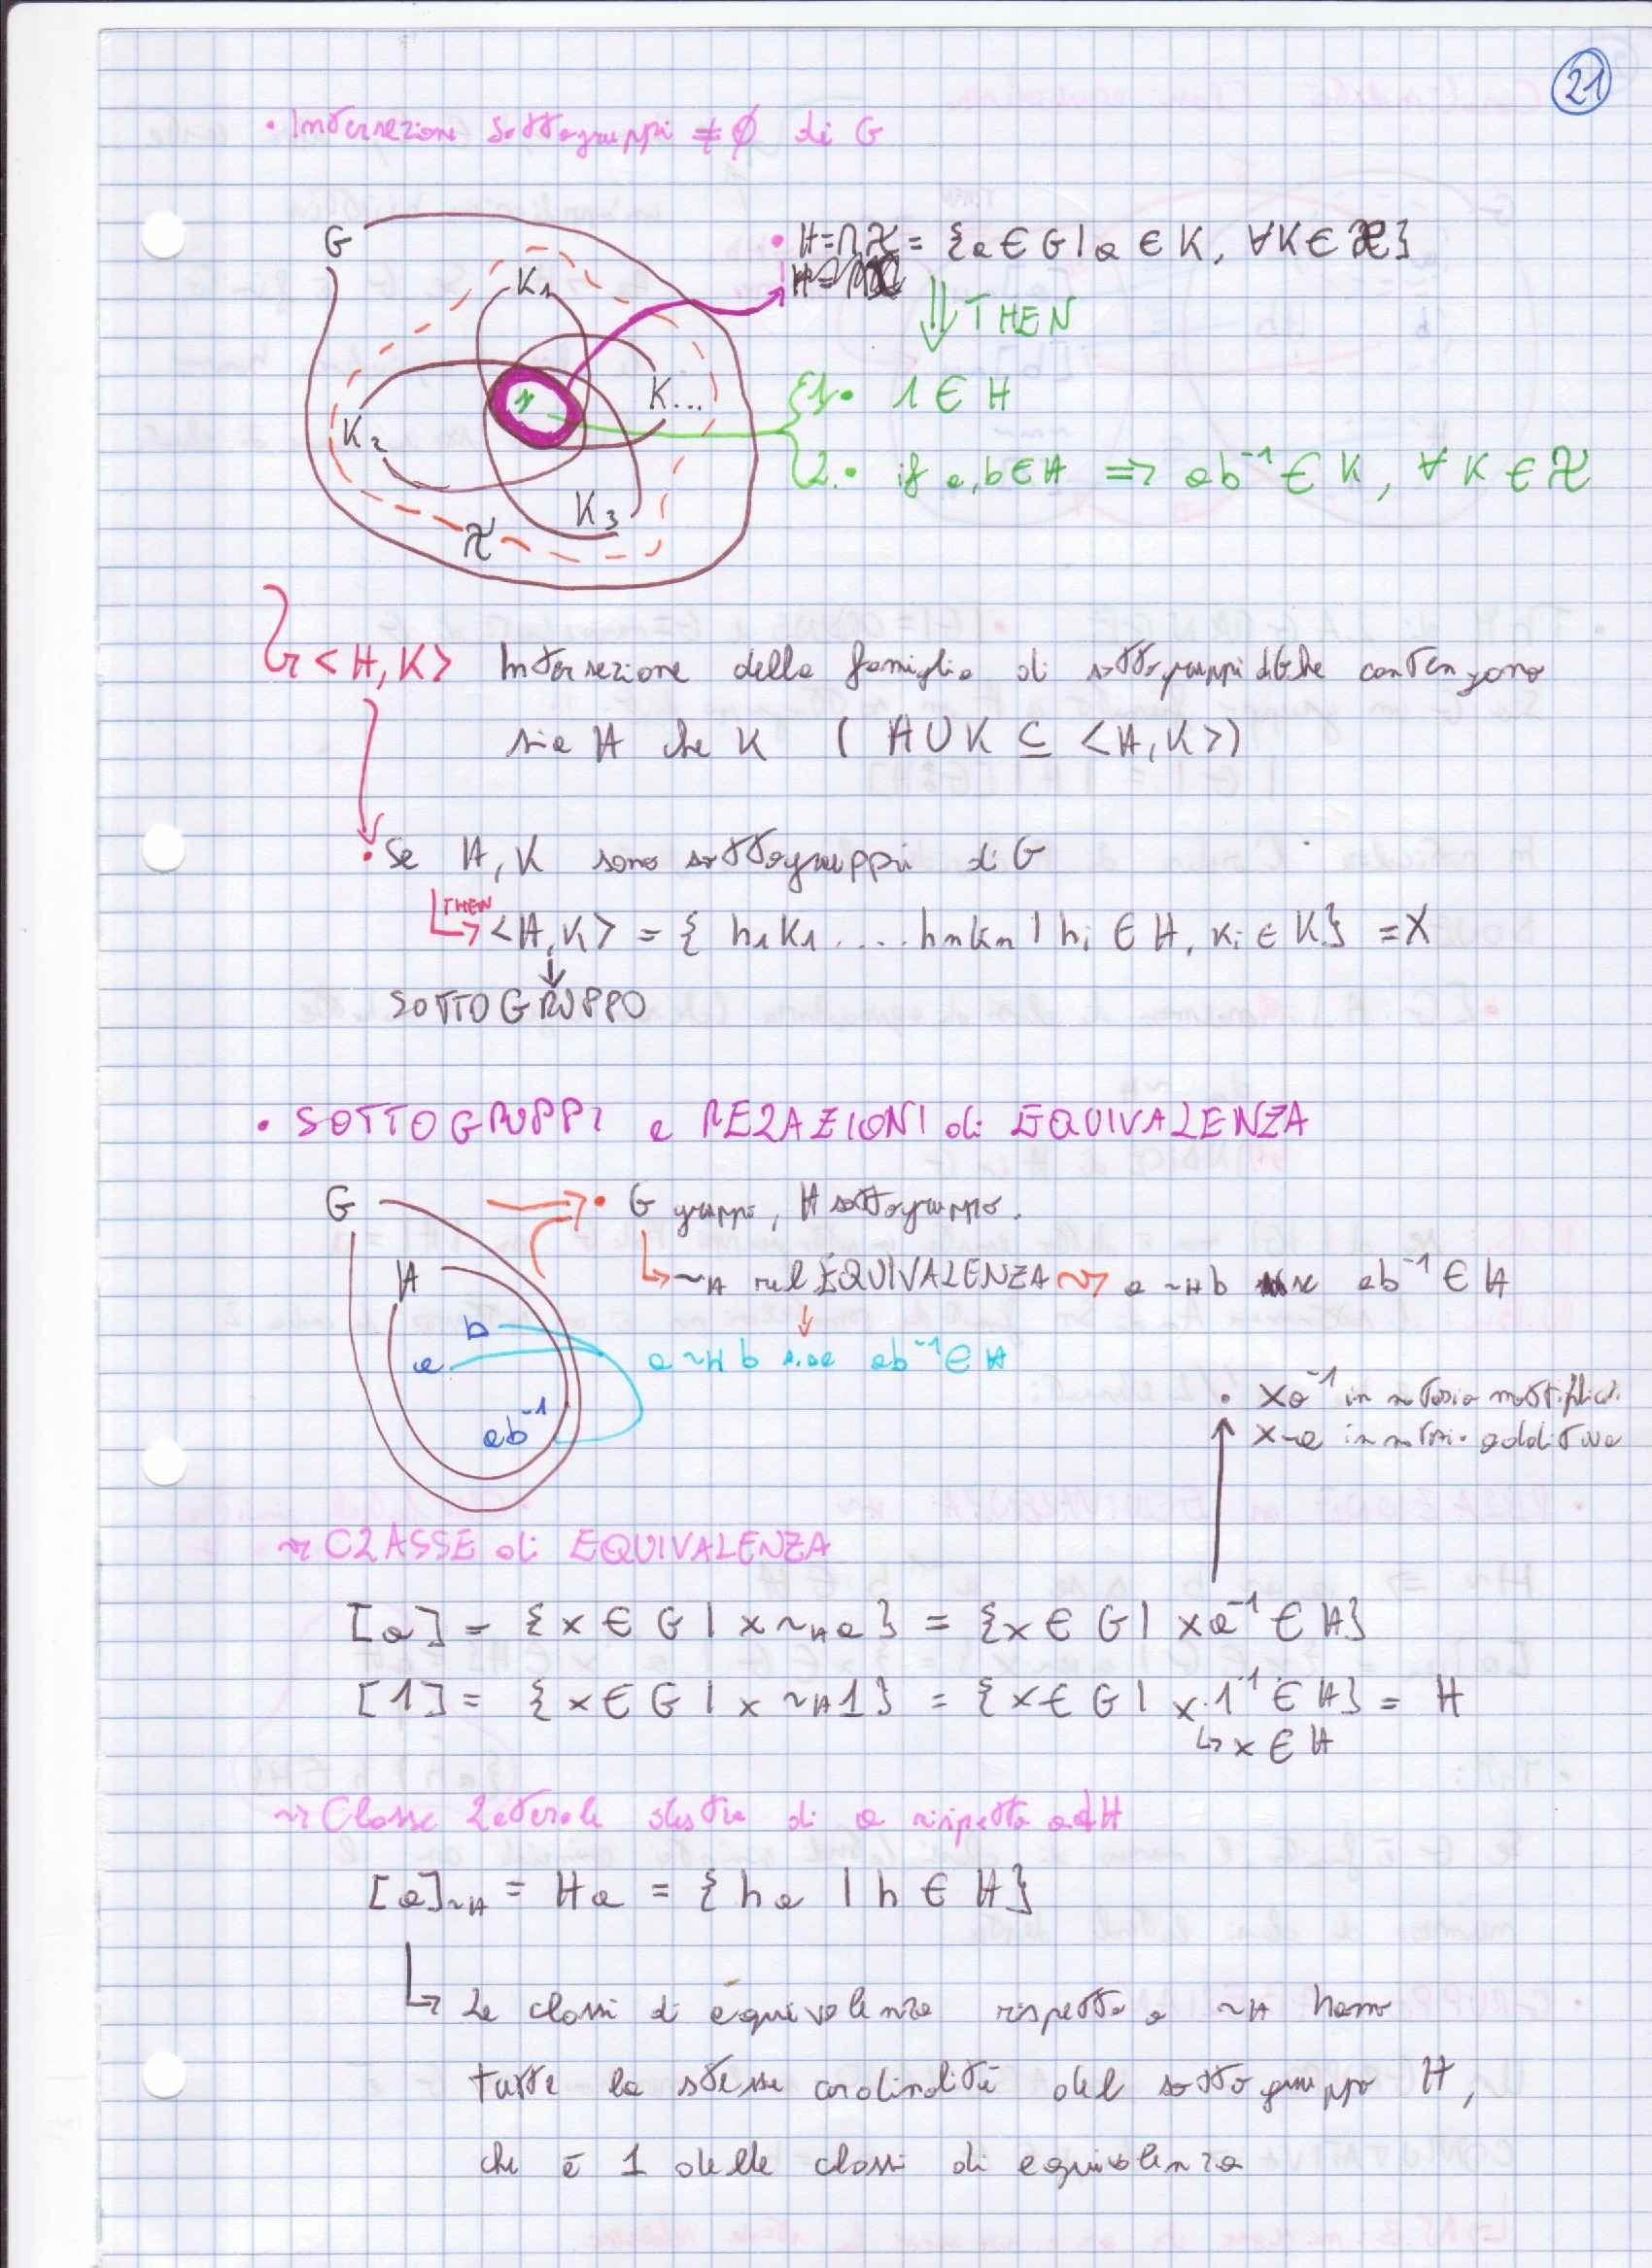 21
• Intersezione sottogruppi ≠ ∅ di G
G
K₁
K₂
K₃
K...
H
ℋ
• H = ∩ℋ = {a ∈ G | a ∈ K, ∀K ∈ ℋ}
⇓ THEN
1. • 1 ∈ H
2. • if a, b ∈ H => ab⁻¹ ∈ K, ∀ K ∈ ℋ
<H, K> Intersezione della famiglia di sottogruppi di G che contengono
sia H che K ( H ∪ K ⊆ <H, K>)
• Se H, K sono sottogruppi di G
THEN
<H, K> = { h₁k₁ .... hₙkₙ | hᵢ ∈ H, kᵢ ∈ K} = X
SOTTOGRUPPO
• SOTTOGRUPPI e RELAZIONI di EQUIVALENZA
G
H
b
a
ab⁻¹
• G gruppo, H sottogruppo.
~H rel EQUIVALENZA ~> a ~H b se ab⁻¹ ∈ H
a ~H b s.se ab⁻¹ ∈ H
• xa⁻¹ in notazio moltiplic.
x-a in notazi. additiva
~> CLASSE di EQUIVALENZA
[a] = {x ∈ G | x ~H a} = {x ∈ G | xa⁻¹ ∈ H}
[1] = {x ∈ G | x ~H 1} = {x ∈ G | x·1⁻¹ ∈ H} = H
↳ x ∈ H
~> Classe Laterale destra di a rispetto ad H
[a]~H = Ha = {ha | h ∈ H}
↳ Le classi di equivalenza rispetto a ~H hanno
tutte la stessa cardinalità del sottogruppo H,
che è 1 delle classi di equivalenza